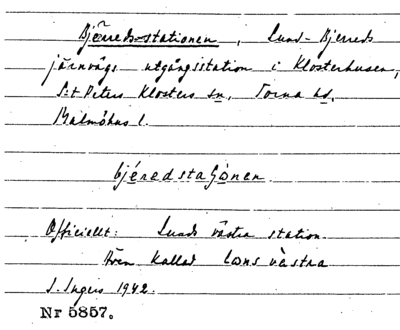 Bjärreds-stationen, Lund-Bjerreds
järnvägs utgångsstation i Klosterhusen,
S:t Peters Klosters sn, Torna hd,
Malmöhus l.
bjéredstaʃonen
Officiellt: Lunds västra station
Även kallad Lons västra
S. Ingers 1942.
Nr 5857.